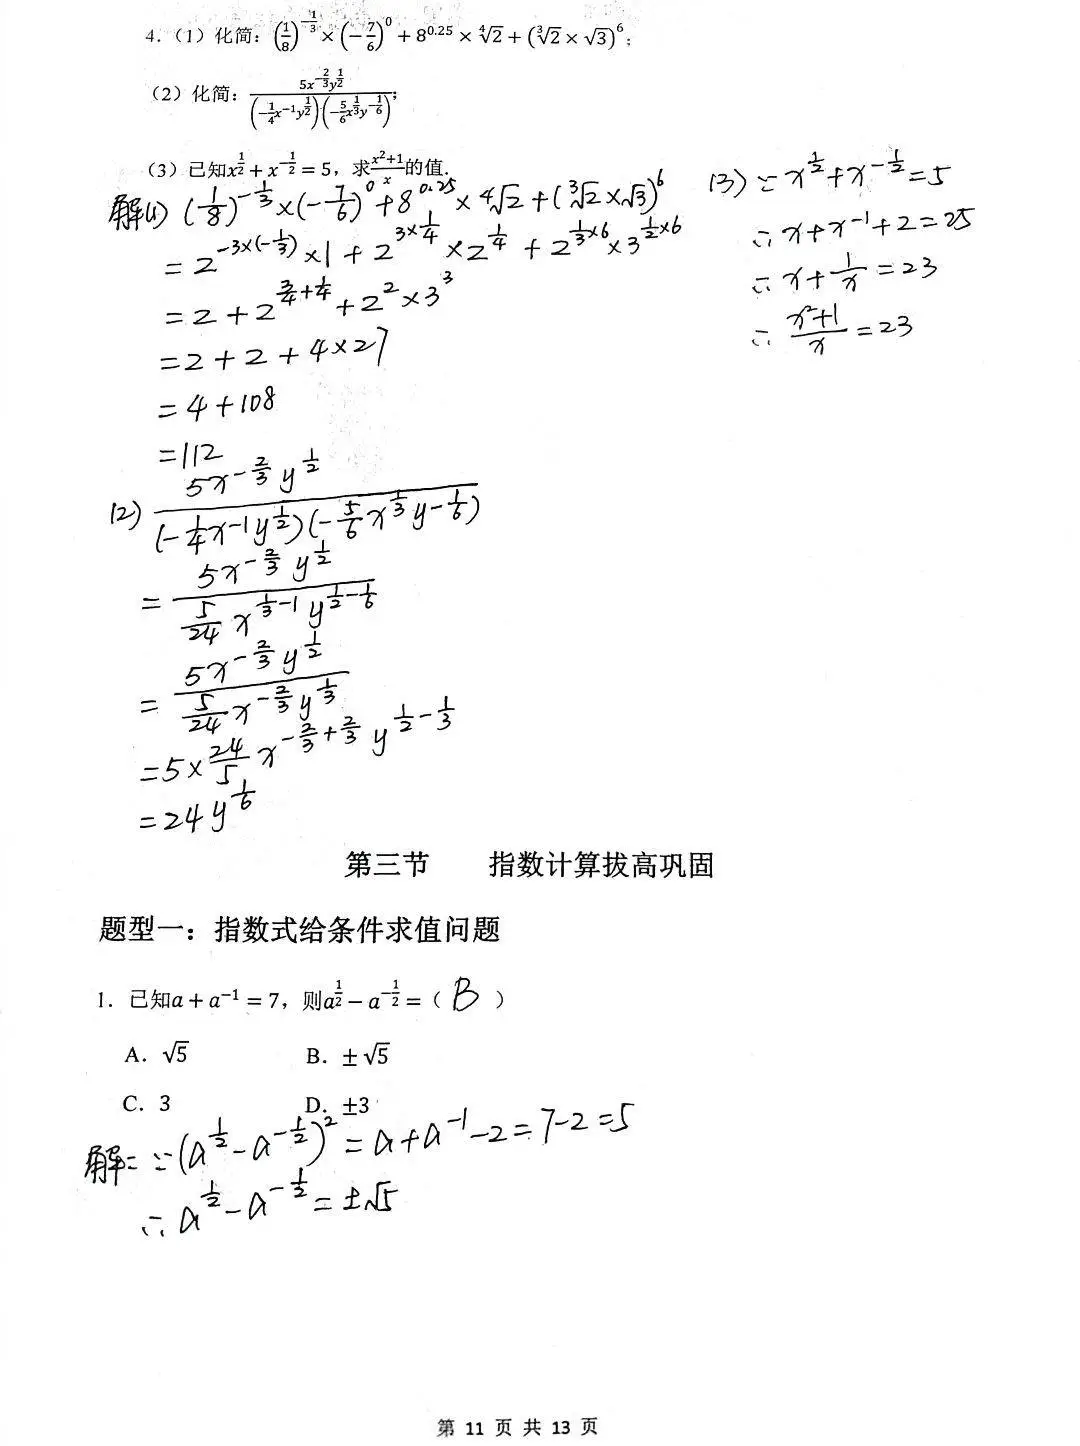 4.（1）化简：(1/8)^(-1/3)×(-7/6)^0+8^0.25×∜2+(∛2×√3)^6；
（2）化简：5x^(-2/3)y^(1/2)/((-1/4x^(-1)y^(1/2))(-5/6x^(1/3)y^(-1/6)))；
（3）已知x^(1/2)+x^(-1/2)=5，求(x²+1)/x的值.
解(1) (1/8)^(-1/3)×(-7/6)^0+8^0.25×∜2+(∛2×√3)^6
=2^(-3×(-1/3))×1+2^(3×1/4)×2^(1/4)+2^(1/3×6)×3^(1/2×6)
=2+2^(3/4+1/4)+2²×3³
=2+2+4×27
=4+108
=112
(2) 5x^(-2/3)y^(1/2)/((-1/4x-1y^(1/2))(-5/6x^(1/3)y-1/6))
=5x^(-2/3)y^(1/2)/(5/24x^(1/3-1)y^(1/2-1/6))
=5x^(-2/3)y^(1/2)/(5/24x^(-2/3)y^(1/3))
=5×24/5x^(-2/3+2/3)y^(1/2-1/3)
=24y^(1/6)
(3) ∵x^(1/2)+x^(-1/2)=5
∴x+x^(-1)+2=25
∴x+1/x=23
∴(x²+1)/x=23
第三节 指数计算拔高巩固
题型一：指数式给条件求值问题
1. 已知a+a^(-1)=7，则a^(1/2)-a^(-1/2)=（ B ）
A. √5 B. ±√5
C. 3 D. ±3
解：∵(a^(1/2)-a^(-1/2))²=a+a^(-1)-2=7-2=5
∴a^(1/2)-a^(-1/2)=±√5
第 11 页 共 13 页